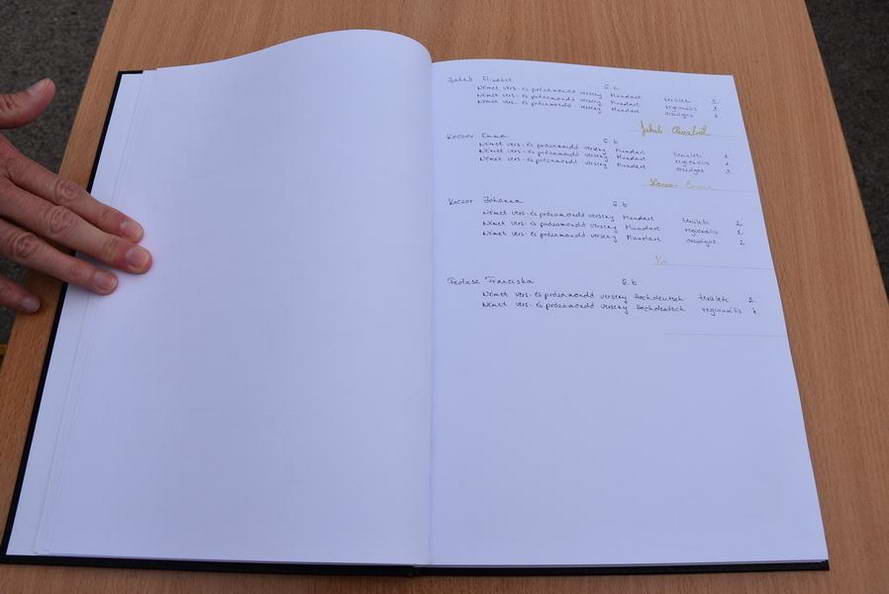 Jakab Elizabet 6. c
Német vers- és prózamondó verseny Mundart területi 1
Német vers- és prózamondó verseny Mundart regionális 1
Német vers- és prózamondó verseny Mundart országos 1
Jakab
Koczor Emma 6. b
Német vers- és prózamondó verseny Mundart területi 1
Német vers- és prózamondó verseny Mundart regionális 1
Német vers- és prózamondó verseny Mundart országos
Koczor Emma
Koczor Johanna 6. b
Német vers- és prózamondó verseny Mundart területi 2
Német vers- és prózamondó verseny Mundart regionális 2
Német vers- és prózamondó verseny Mundart országos 2
Ko
Franciska 6. b
Német vers- és prózamondó verseny Hochdeutsch területi 2
Német vers- és prózamondó verseny Hochdeutsch regionális